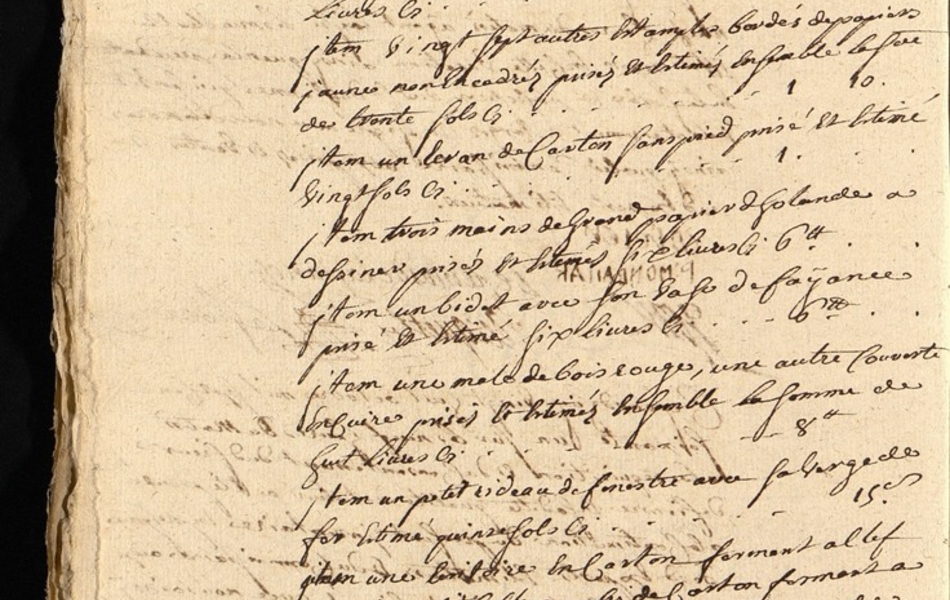 livres Ci
jtem vingt sept autres Estamples bordés de papiers
jaune non Encadrés prisés Et Estimés Ensemble la somme
de trente sols Ci 1 10.
jtem un Ecran de Carton sans pied prisé Et Estimé
vingt sols Ci 1.
jtem trois mains de Grand papier d'holande a
dessiner prisés Et Estimés six livres Ci 6 ₶
jtem un bidet avec son vase de fayance
prisé Et Estimé six livres Ci 6 ₶
jtem une male de bois rouge, une autre Couverte
En Cuire prisés Et Estimés Ensemble la somme de
huit livres Ci 8 ₶
jtem un petit rideau de fenestre avec sa verge de
fer Estimé quinse sols Ci 15 s
jtem une Ecritoire En Carton fermant a Clef
de Carton fermant a